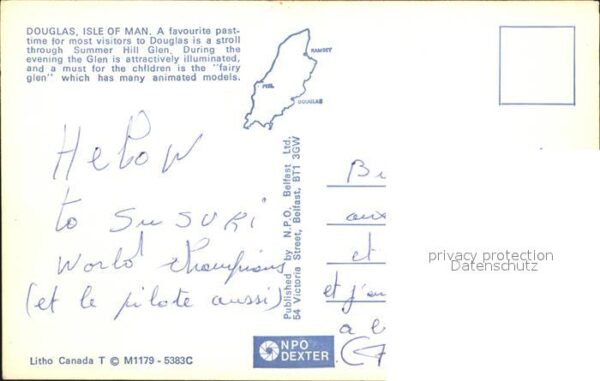 DOUGLAS, ISLE OF MAN. A favourite past-
time for most visitors to Douglas is a stroll
through Summer Hill Glen. During the
evening the Glen is attractively illuminated,
and a must for the children is the "fairy
glen" which has many animated models.
RAMSEY
PEEL
DOUGLAS
Hellow
to SuSUKi
World Champions
(et le pilote aussi)
Published by N.P.O. Belfast Ltd,
54 Victoria Street, Belfast, BT1 3GW
aux
et
et j'au
a l
privacy protection
Datenschutz
NPO
DEXTER
Litho Canada T © M1179 - 5383C